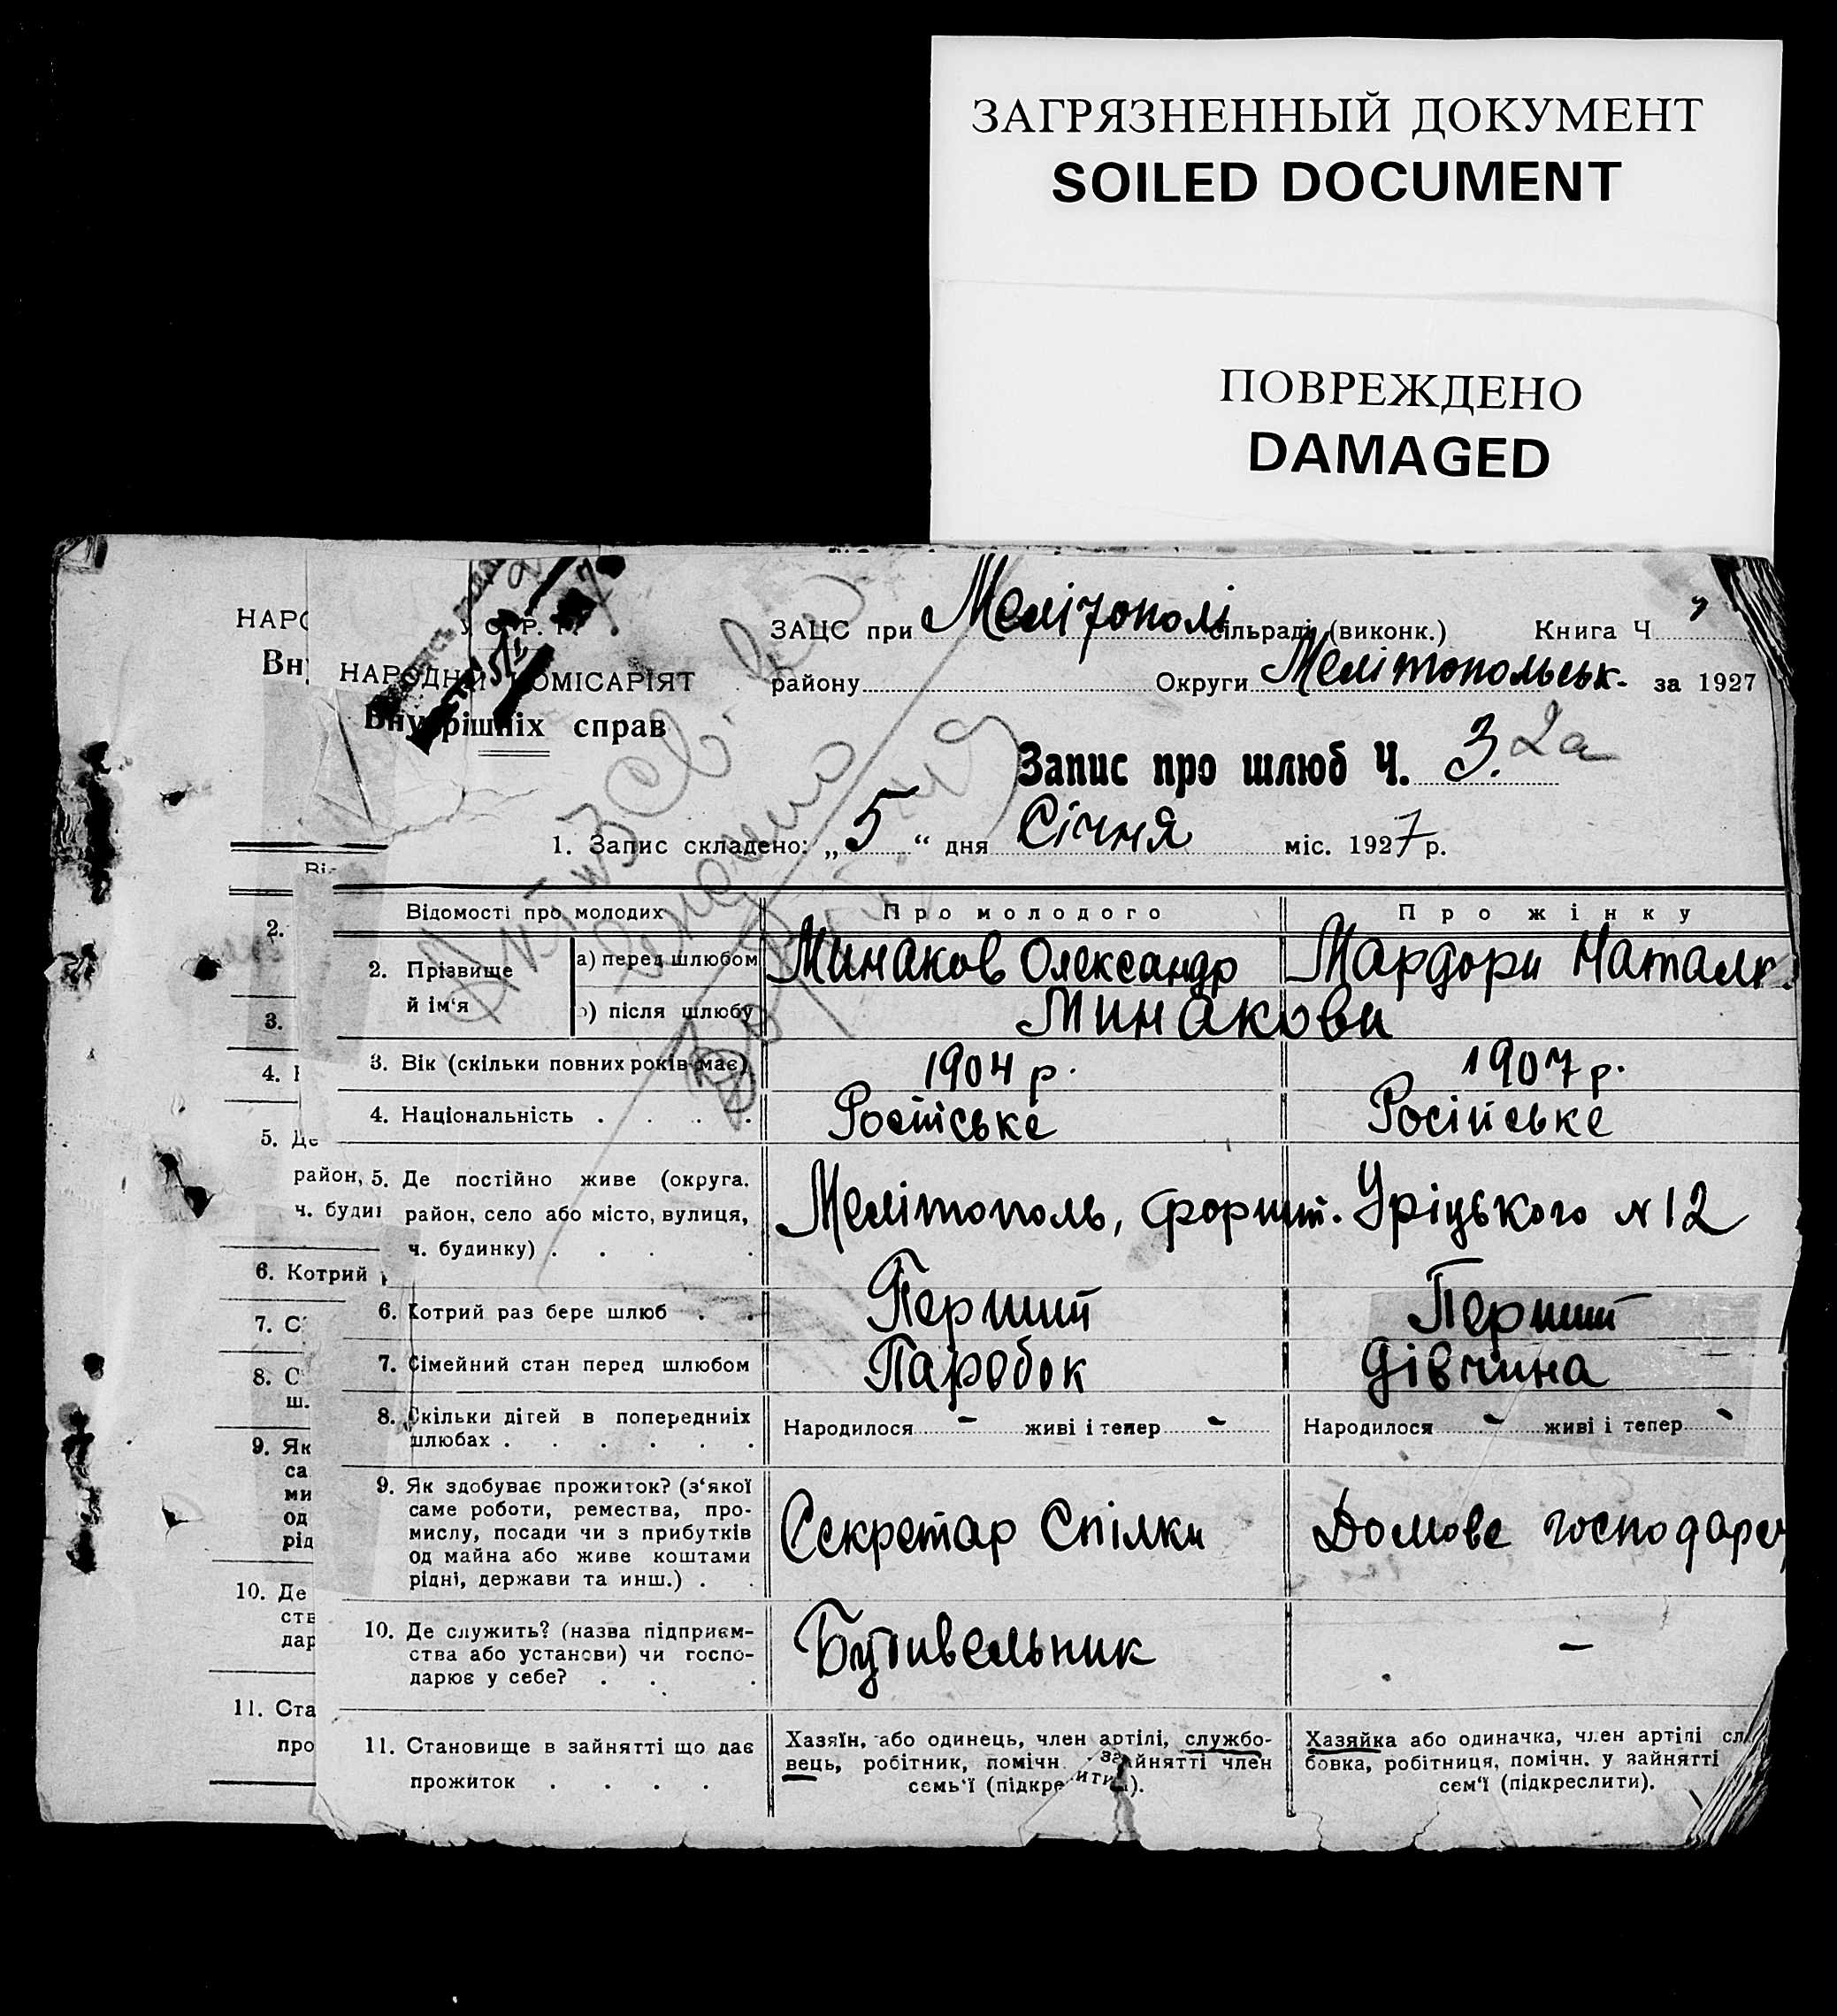 ЗАГРЯЗНЕННЫЙ ДОКУМЕНТ
SOILED DOCUMENT
ПОВРЕЖДЕНО
DAMAGED
НАРО
Вну
2.
3.
4.
5. Де
район,
ч. будин
6. Котрий
7. С
8. С
ш.
9. Як
са
ми
од
рід
10. Де
ств
дар
11. Ста
про
НАРОДНИЙ КОМІСАРІЯТ
Внутрішніх справ
ЗАЦС при Мелітополі сільраді (виконк.) Книга Ч
району Округи Мелітопольськ. за 1927
Запис про шлюб Ч. 3. 2а
1. Запис складено: „5“ дня Січня міс. 1927 р.
Відомості про молодих Про молодого Про жінку
2. Прізвище й ім‘я а) перед шлюбом Минаков Олександр Мардори Наталк
) після шлюбу Минакови
3. Вік (скільки повних років має) 1904 р. 1907 р.
4. Національність . . . . Російське Російське
5. Де постійно живе (округа.
район, село або місто, вулиця, Мелітополь, форшт. Уріцького N 12
ч. будинку) . . . .
6. Котрий раз бере шлюб . . Перший Перший
7. Сімейний стан перед шлюбом Паробок Дівчина
8. Скільки дітей в попередниіх
шлюбах . . . . . . Народилося - живі і тепер - Народилося - живі і тепер -
9. Як здобуває прожиток? (з‘якої
саме роботи, ремества, про-
мислу, посади чи з прибутків Секретар Спілки Домове господарс
од майна або живе коштами
рідні, держави та инш.) . .
10. Де служить? (назва підприєм-
ства або установи) чи госпо- Будивельник —
дарює у себе? . . .
11. Становище в зайнятті що дає
прожиток . . . .
Хазяїн, або одинець, член артілі, службо-
вець, робітник, помічн. зайнятті член
семь‘ї (підкре ити).
Хазяйка або одиначка, член артілі сл
бовка, робітниця, помічн. у зайнятті
сем‘ї (підкреслити).